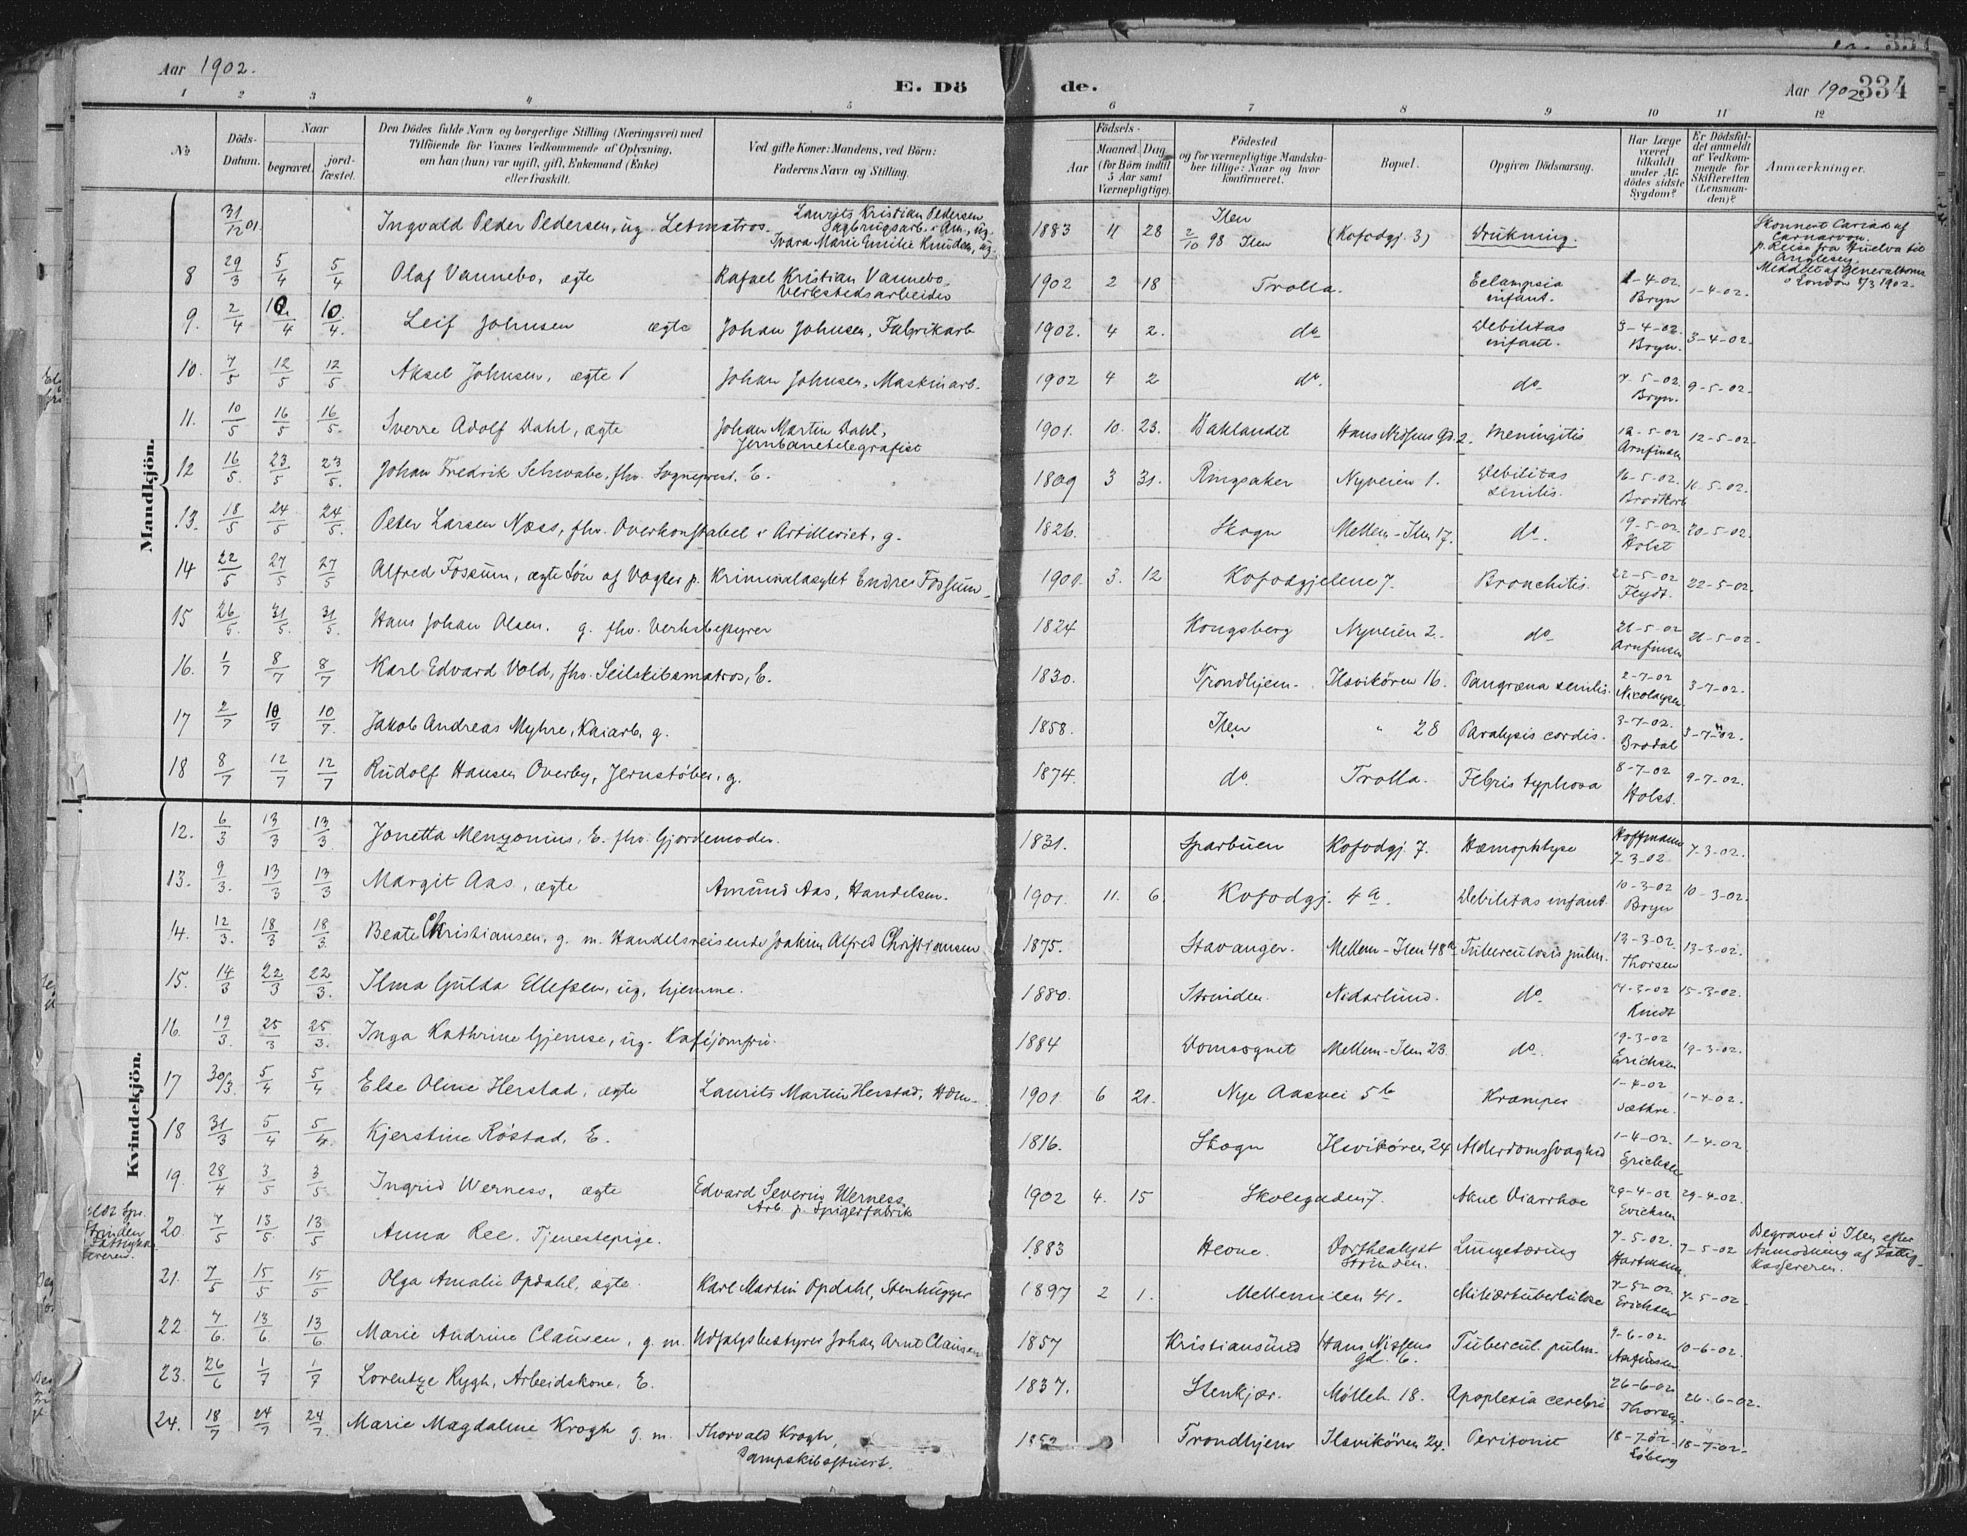 Aar 1902.
E. Dö
de.
Aar 1902
334
1 2 3 4 5 6 7 8 9 10 11 12
No
Döds-Datum.
Naar
begravet.
jord-fæstet.
Den Dödes fulde Navn og borgerlige Stilling (Næringsvei) med
Tilföiende for Voxnes Vedkommende af Oplysning,
om han (hun) var ugift, gift, Enkemand (Enke)
eller fraskilt.
Ved gifte Koner: Mandens, ved Börn:
Faderens Navn og Stilling.
Födsels-
Aar
Maaned. Dag
(for Börn indtil
5 Aar samt
Værnepligtige).
Födested
og for værnepligtige Mandska-
ber tillige: Naar og hvor
konfirmeret.
Bopæl.
Opgiven Dödsaarsag.
Har Læge
været
tilkaldt
under Af-
dödes sidste
Sygdom?
Er Dödsfal-
det anmeldt
af Vedkom-
mende for
Skifteretten
(Lensman-
den)?
Anmærkninger.
Mandkjön.
31/12 01. Ingvald Peder Pedersen, ug. Letmatros. Laurits Kristian Pedersen Sagbrugsarb. Ivara Marie Emilie Knudsen, ug. 1883 4 28 Ilen 2/10 98 Ilen (Kofodgj. 3) Drukning. Skonnert Cariad af Carnarvon. p. Reise fra Huelva til Anglesey. Meddelt af Generalkons. i London 8/3 1902.
8 29/3 5/4 5/4 Olaf Vannebo, ægte Rafael Kristian Vannebo, Verkstedsarbeider 1902 2 18 Trolla. Eclampsia infant. 1-4-02. Bryn 1-4-02.
9. 2/4 10/4 10/4. Leif Johnsen ægte Johan Johnsen, Fabrikarb 1902. 4 2. do Debilitas infant. 3-4-02. Bryn. 3-4-02.
10. 7/5 12/5 12/5 Aksel Johnsen, ægte Johan Johnsen, Maskinarb. 1902 4 2 do. do 7-5-02. Bryn. 9-5-02.
11. 10/5 16/5 16/5. Sverre Adolf Dahl, ægte Johan Martin Dahl, Jernbanetelegrafist 1901. 10. 23. Baklandet Hans Nissens Gd. 2. Meningitis 12-5-02 Arnfinsen 12-5-02.
12 16/5. 23/5 23/5. Johan Fredrik Schwabe, fhv. Sogneprest. E. 1809 3 31. Ringsaker Nyveien 1. Debilitas senilis. 16-5-02. 16-5-02.
13. 18/5 24/5 24/5. Peter Larsen Næss, fhv. Overkonstabel i Artilleriet, g. 1826. Skogn Mellem-Ilen 17. do. 19-5-02. Holst 20-5-02.
14 22/5 27/5 27/5 Alfred Fossum, ægte Søn af Vogter p. Kriminalasylet Endre Fossum 1901. 3. 12 Kofodgjelene 7. Bronchitis. 22-5-02 22-5-02.
15 26/5. 31/5. 31/5. Hans Johan Olsen. g. fhv. Verksbestyrer 1824 Kongsberg Nyveien 2. do 26-5-02 Arnfinsen 26-5-02.
16. 1/7 8/7 8/7 Karl Edvard Vold, fhv. Seilskibsmatros, E. 1830. Trondhjem. Ilsvikören 16. Gangræna senilis. 2-7-02 Nicolaysen 3-7-02.
17 2/7 10/7 10/7. Jakob Andreas Myhre, Kaiarb, g. 1858. Ilen " 28 Paralysis cordis. 3-7-02. Brodal 3-7-02.
18 8/7 12/7 12/7 Rudolf Hansen Overby, Jernstøber, g. 1874. do. Trolla. Febris typhosa 8-7-02 Holst. 9-7-02.
Kvindekjön.
12. 6/3 13/3 13/3 Jonetta Menzonius, E. fhv. Gjordemoder. 1831. Sparbuen Kofodgj. 7. Hæmoptyse Hoffmann 7-3-02 7-3-02.
13. 9/3. 13/3 13/3 Margit Aas, ægte Amund Aas, Handelsm. 1901. 11. 6. Kofodgj. 4 a. Debilitas infant. 10-3-02 Bryn 10-3-02.
14. 12/3. 18/3 18/3 Beate Christiansen, g. m. Handelsreisende Joakim Alfred Christiansen 1875. Stavanger. Mellem-Ilen 48 a Tuberculosis pulm. 13-3-02. Thorsen 13-3-02.
15. 14/3 22/3 22/3. Ilma Gulda Ellefsen, ug, hjemme. 1880. Strinden. Nidarlund. do 14-3-02 Kindt 15-3-02.
16. 19/3. 25/3 25/3. Inga Kathrine Gjemse, ug. Kaféjomfru. 1884 Domsognet Mellem-Ilen 23 do. 19-3-02 Erichsen 19-3-02.
17 30/3 5/4 5/4 Else Oline Herstad, ægte Laurits Martin Herstad, Hdm. 1901 6 21. Nye Aasvei 5 b Kramper 1-4-02 Sæthre. 1-4-02.
18 31/3 5/4 5/4. Kjerstine Röstad, E. 1816. Skogn Ilsvikören 24 Alderdomssvaghed 1-4-02. Erichsen 1-4-02.
19. 28/4 3/5 3/5. Ingrid Werness, ægte Edvard Severin Werness, Arb. p. Spigerfabrik 1902 4. 15 Skolegaden 7. Akut Diarrhoe 29-4-02 Erichsen 29-4-02.
20. 7/5 13/5. 13/5 Anna Ree. Tjenestepige. 1883 Hevne. Strinden. Lungetæring 7-5-02. Hartmann 7-5-02 Begravet i Ilen efter Anmodning af Fattigkassereren.
21. 7/5 15/5 15/5 Olga Amalie Opdahl, ægte. Karl Martin Opdahl, Stenhugger 1897 2 1. Mellemilen 41. Miliærtuberkulose 7-5-02. Erichsen 7-5-02.
22. 7/6. 13/6 13/6 Marie Andrine Clausen, g. m. Udsalgsbestyrer Johan Arnt Clausen 1857 Kristiansund Hans Nissens gd. 6. Tubercul. pulm. 9-6-02. Arnfinsen 10-6-02.
23. 26/6 1/7 1/7 Lorentze Rygh, Arbeidskone, E. 1837. Stenkjær. Mölleb. 18. Apoplexia cerebri 26-6-02 Thorsen. 26-6-02.
24. 18/7 24/7 24/7. Marie Magdaline Krogh g. m. Thorvald Krogh, Dampskibsstuert. 1852 Trondhjem Ilsvikören 24. Peritonit 18-7-02. Söberg 18-7-02.